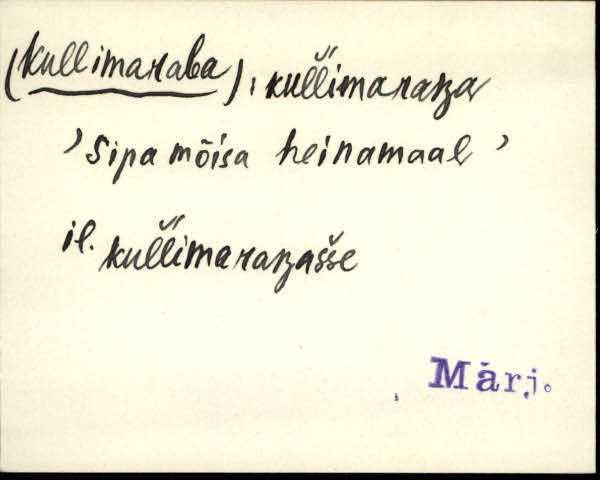 (kullimaraba), kul̆l̆imaraʙa
’Sipa mõisa heinamaal’
il. kul̆l̆imaraʙašše
Märj.